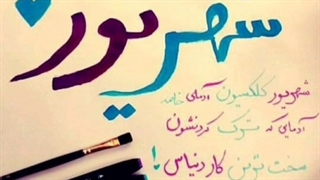 شهریور
شهریور کلکسیون آدمای خاصه
آدمایی که ترک کردنشون
سخت ترین کار دنیاس!